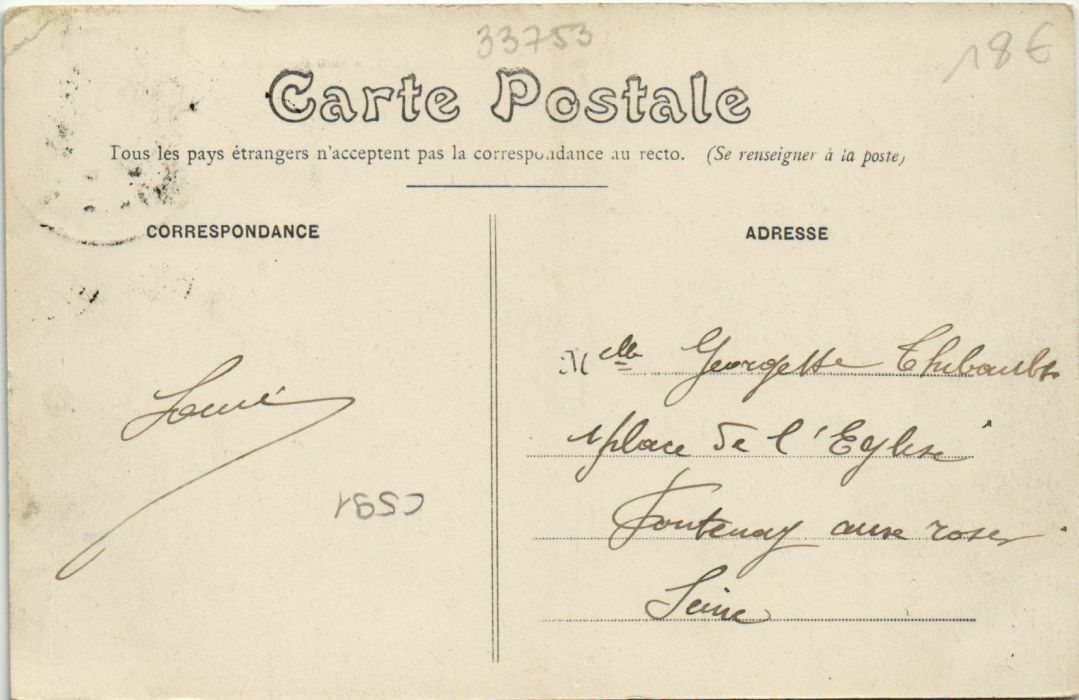 33753
18€
Carte Postale
Tous les pays étrangers n'acceptent pas la correspondance au recto. (Se renseigner à la poste)
CORRESPONDANCE
ADRESSE
Melle Georgette Thibault
place de l'Eglise
Fontenay aux roses
Seine